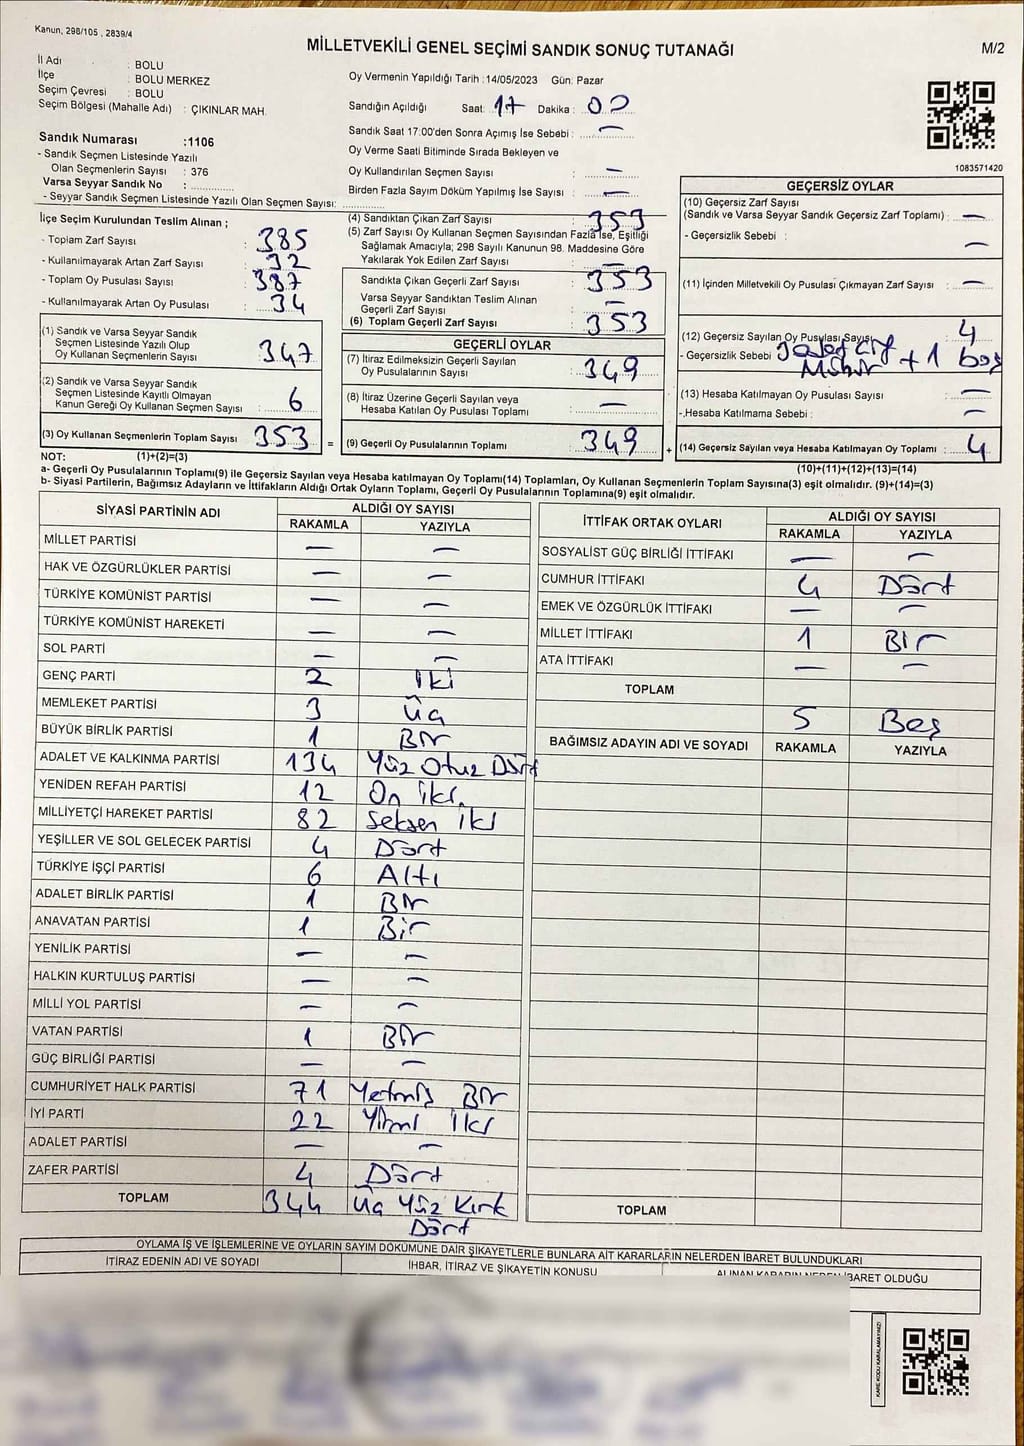 Kanun, 298/105 , 2839/4
MİLLETVEKİLİ GENEL SEÇİMİ SANDIK SONUÇ TUTANAĞI
M/2
İl Adı : BOLU
İlçe : BOLU MERKEZ
Seçim Çevresi : BOLU
Seçim Bölgesi (Mahalle Adı) : ÇIKINLAR MAH.
Sandık Numarası :1106
- Sandık Seçmen Listesinde Yazılı
Olan Seçmenlerin Sayısı : 376
Varsa Seyyar Sandık No : ..............
- Seyyar Sandık Seçmen Listesinde Yazılı Olan Seçmen Sayısı: ..............
Oy Vermenin Yapıldığı Tarih :14/05/2023 Gün: Pazar
Sandığın Açıldığı Saat: 17 Dakika : 00
Sandık Saat 17:00'den Sonra Açımış İse Sebebi : —
Oy Verme Saati Bitiminde Sırada Bekleyen ve
Oy Kullandırılan Seçmen Sayısı : —
Birden Fazla Sayım Döküm Yapılmış İse Sayısı : —
1083571420
İlçe Seçim Kurulundan Teslim Alınan ;
- Toplam Zarf Sayısı : 385
- Kullanılmayarak Artan Zarf Sayısı : 32
- Toplam Oy Pusulası Sayısı : 387
- Kullanılmayarak Artan Oy Pusulası : 34
(1) Sandık ve Varsa Seyyar Sandık
Seçmen Listesinde Yazılı Olup
Oy Kullanan Seçmenlerin Sayısı : 347
(2) Sandık ve Varsa Seyyar Sandık
Seçmen Listesinde Kayıtlı Olmayan
Kanun Gereği Oy Kullanan Seçmen Sayısı : 6
(3) Oy Kullanan Seçmenlerin Toplam Sayısı : 353
(4) Sandıktan Çıkan Zarf Sayısı : 353
(5) Zarf Sayısı Oy Kullanan Seçmen Sayısından Fazla İse, Eşitliği
Sağlamak Amacıyla; 298 Sayılı Kanunun 98. Maddesine Göre
Yakılarak Yok Edilen Zarf Sayısı : —
Sandıkta Çıkan Geçerli Zarf Sayısı : 353
Varsa Seyyar Sandıktan Teslim Alınan
Geçerli Zarf Sayısı : —
(6) Toplam Geçerli Zarf Sayısı : 353
GEÇERLİ OYLAR
(7) İtiraz Edilmeksizin Geçerli Sayılan
Oy Pusulalarının Sayısı : 349
(8) İtiraz Üzerine Geçerli Sayılan veya
Hesaba Katılan Oy Pusulası Toplamı : —
= (9) Geçerli Oy Pusulalarının Toplamı : 349 +
GEÇERSİZ OYLAR
(10) Geçersiz Zarf Sayısı
(Sandık ve Varsa Seyyar Sandık Geçersiz Zarf Toplamı) : —
- Geçersizlik Sebebi : —
(11) İçinden Milletvekili Oy Pusulası Çıkmayan Zarf Sayısı : —
(12) Geçersiz Sayılan Oy Pusulası Sayısı : 4
- Geçersizlik Sebebi : 3 adet çift
Mühür + 1 boş
(13) Hesaba Katılmayan Oy Pusulası Sayısı : —
-.Hesaba Katılmama Sebebi : —
(14) Geçersiz Sayılan veya Hesaba Katılmayan Oy Toplamı : 4
NOT: (1)+(2)=(3)
(10)+(11)+(12)+(13)=(14)
a- Geçerli Oy Pusulalarının Toplamı(9) ile Geçersiz Sayılan veya Hesaba katılmayan Oy Toplamı(14) Toplamları, Oy Kullanan Seçmenlerin Toplam Sayısına(3) eşit olmalıdır. (9)+(14)=(3)
b- Siyasi Partilerin, Bağımsız Adayların ve İttifakların Aldığı Ortak Oyların Toplamı, Geçerli Oy Pusulalarının Toplamına(9) eşit olmalıdır.
SİYASİ PARTİNİN ADI ALDIĞI OY SAYISI
RAKAMLA YAZIYLA
MİLLET PARTİSİ — —
HAK VE ÖZGÜRLÜKLER PARTİSİ — —
TÜRKİYE KOMÜNİST PARTİSİ — —
TÜRKİYE KOMÜNİST HAREKETİ — —
SOL PARTİ — —
GENÇ PARTİ 2 İki
MEMLEKET PARTİSİ 3 Üç
BÜYÜK BİRLİK PARTİSİ 1 Bir
ADALET VE KALKINMA PARTİSİ 134 Yüz Otuz Dört
YENİDEN REFAH PARTİSİ 12 On iki
MİLLİYETÇİ HAREKET PARTİSİ 82 Seksen iki
YEŞİLLER VE SOL GELECEK PARTİSİ 4 Dört
TÜRKİYE İŞÇİ PARTİSİ 6 Altı
ADALET BİRLİK PARTİSİ 1 Bir
ANAVATAN PARTİSİ 1 Bir
YENİLİK PARTİSİ — —
HALKIN KURTULUŞ PARTİSİ — —
MİLLİ YOL PARTİSİ — —
VATAN PARTİSİ 1 Bir
GÜÇ BİRLİĞİ PARTİSİ — —
CUMHURİYET HALK PARTİSİ 71 Yetmiş Bir
İYİ PARTİ 22 Yirmi iki
ADALET PARTİSİ — —
ZAFER PARTİSİ 4 Dört
TOPLAM 344 Üç Yüz Kırk
Dört
İTTİFAK ORTAK OYLARI ALDIĞI OY SAYISI
RAKAMLA YAZIYLA
SOSYALİST GÜÇ BİRLİĞİ İTTİFAKI — —
CUMHUR İTTİFAKI 4 Dört
EMEK VE ÖZGÜRLÜK İTTİFAKI — —
MİLLET İTTİFAKI 1 Bir
ATA İTTİFAKI — —
TOPLAM
5 Beş
BAĞIMSIZ ADAYIN ADI VE SOYADI RAKAMLA YAZIYLA
TOPLAM
OYLAMA İŞ VE İŞLEMLERİNE VE OYLARIN SAYIM DÖKÜMÜNE DAİR ŞİKAYETLERLE BUNLARA AİT KARARLARIN NELERDEN İBARET BULUNDUKLARI
İTİRAZ EDENİN ADI VE SOYADI İHBAR, İTİRAZ VE ŞİKAYETİN KONUSU ALINAN KARARIN NEDEN İBARET OLDUĞU
KARE KODU KARALAMAYINIZ!